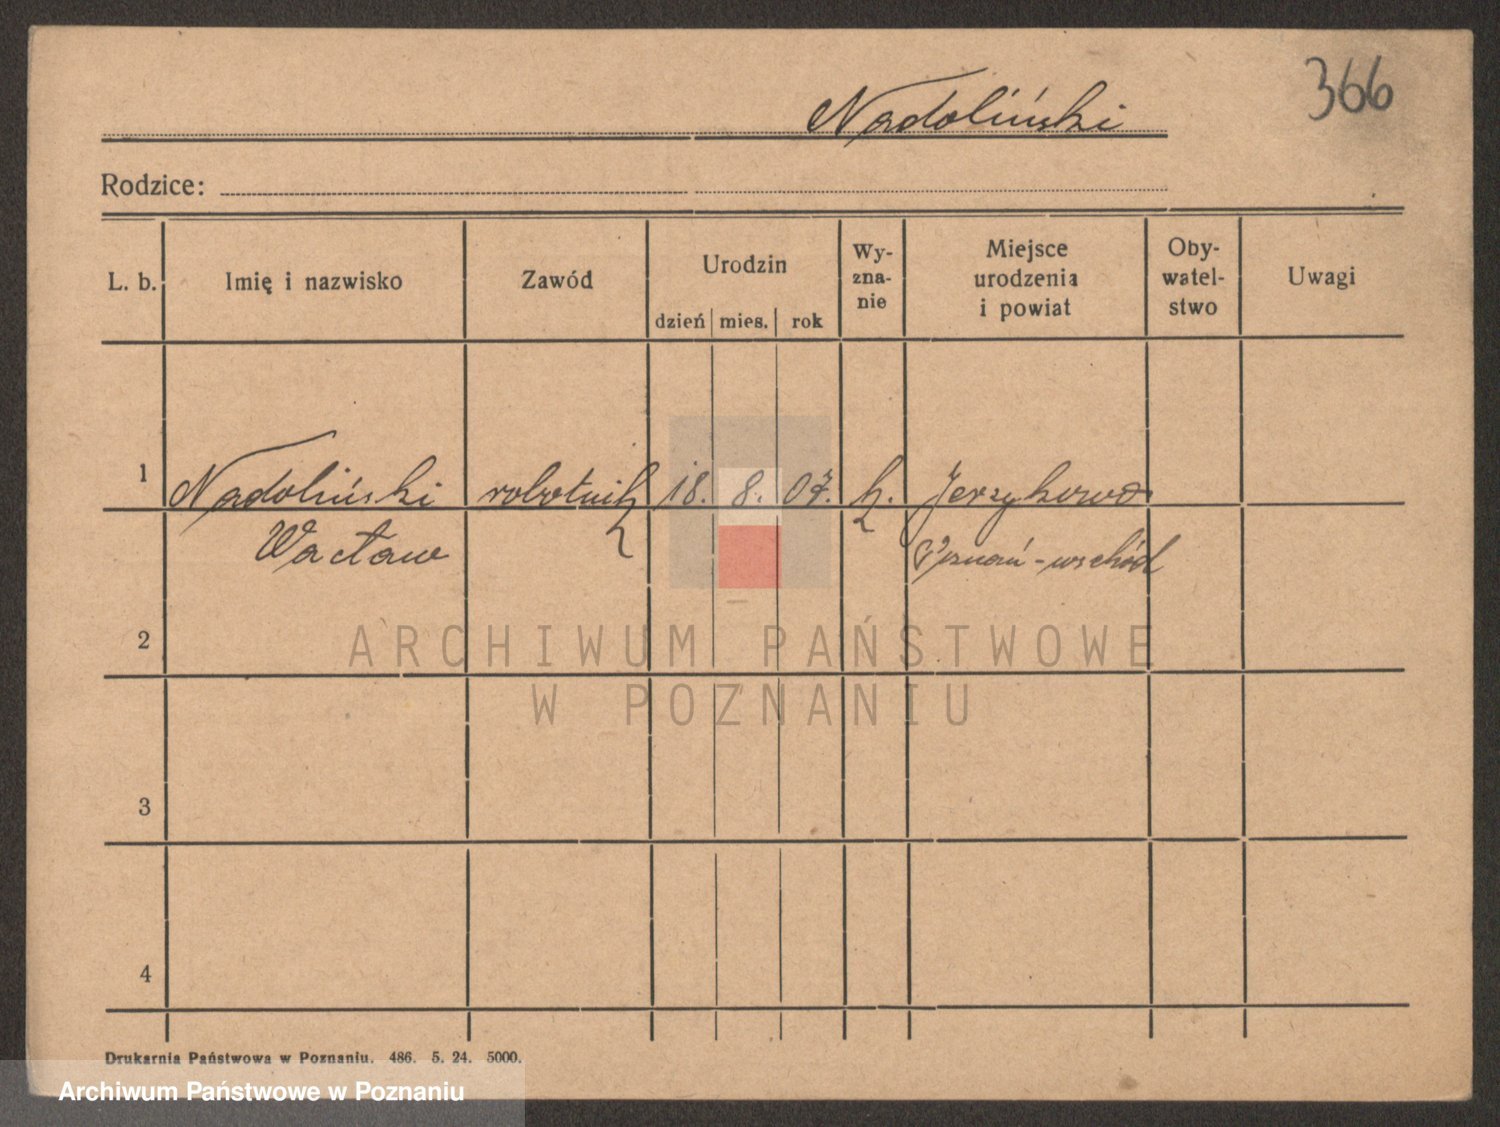 366
Nadoliński
Rodzice:
L. b. Imię i nazwisko Zawód Urodzin dzień mies. rok Wy-zna-nie Miejsce urodzenia i powiat Oby-watel-stwo Uwagi
1 Nadoliński robotnik 18. 8. 07. k. Jerzykowo
Wacław Poznań-wschód
2
ARCHIWUM PAŃSTWOWE
W POZNANIU
3
4
Drukarnia Państwowa w Poznaniu. 486. 5. 24. 5000.
Archiwum Państwowe w Poznaniu